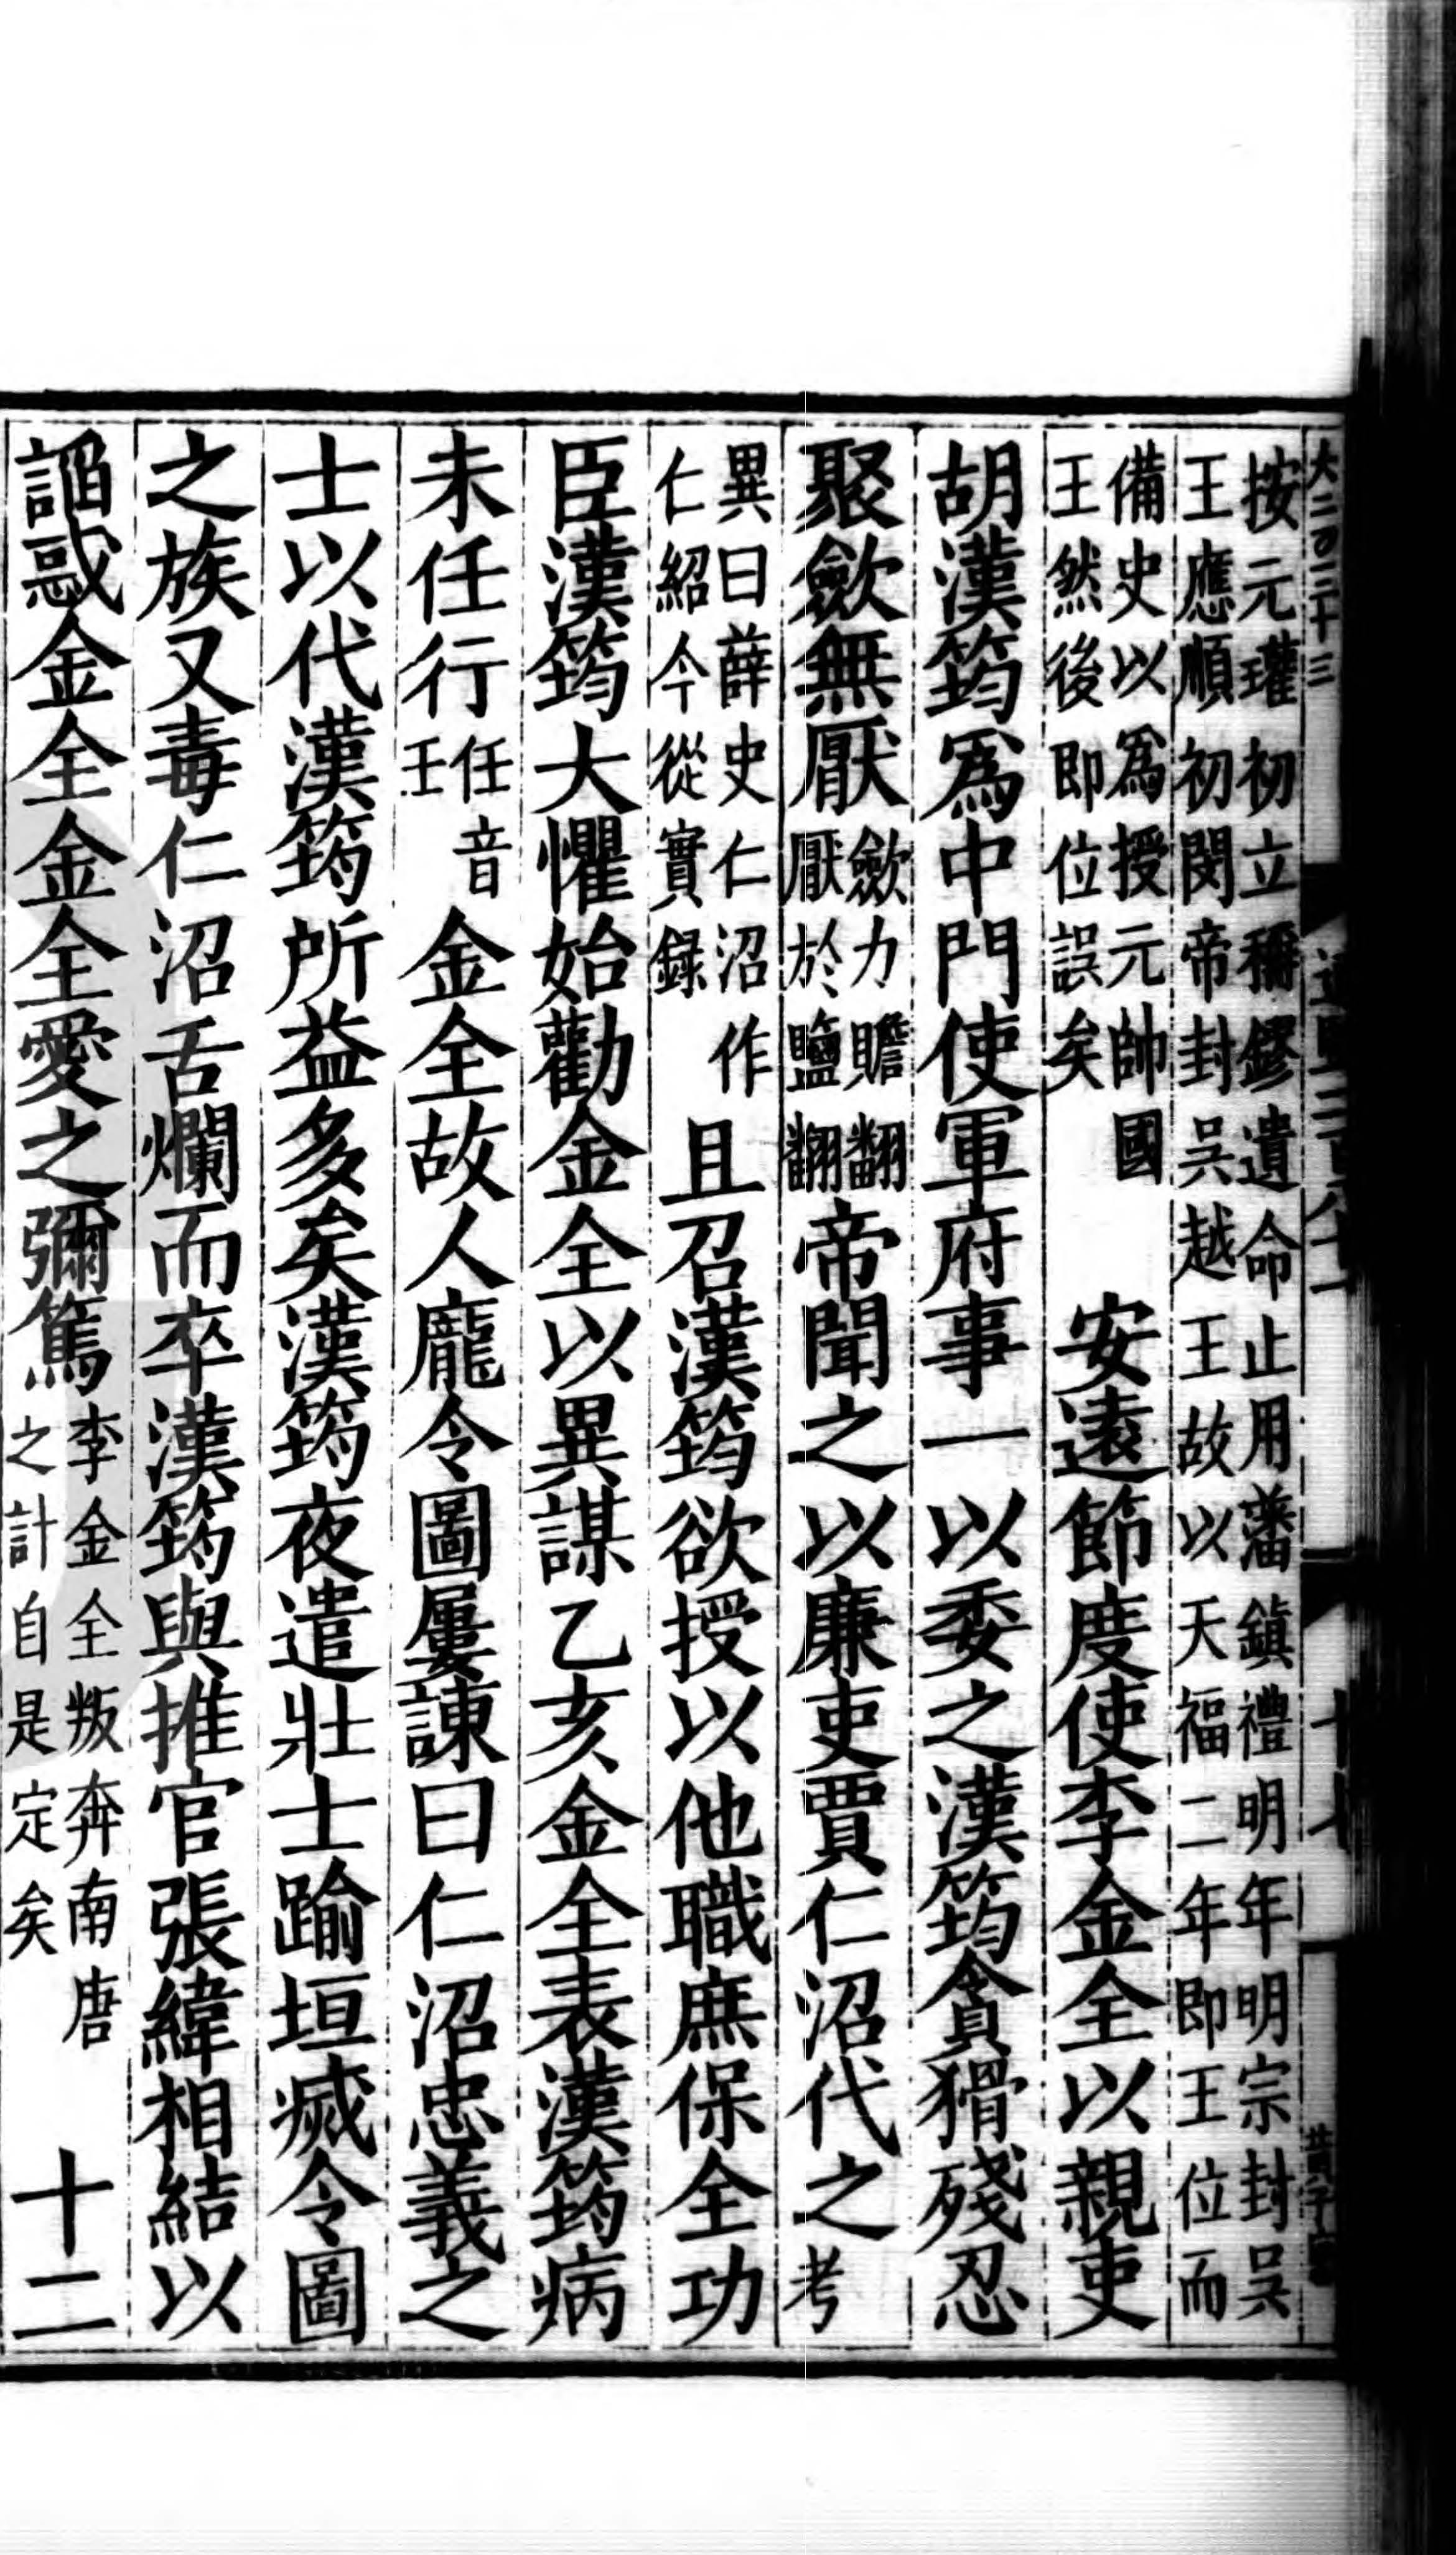 大二百三十三
按元瓘初立稱鏐遺命止用藩鎮禮明年明宗封吳
王應順初閔帝封吳越王故以天福二年即王位而
備史以爲授元帥國
王然後即位誤矣
安遠節度使李金全以親吏
胡漢筠爲中門使軍府事一以委之漢筠貪猾殘忍
聚歛無厭
歛力贍翻
厭於鹽翻
帝聞之以廉吏賈仁沼代之
考
異曰薛史仁沼作
仁紹今從實録
且召漢筠欲授以他職庶保全功
臣漢筠大懼始勸金全以異謀乙亥金全表漢筠病
未任行
任音
壬
金全故人龐令圖屢諫曰仁沼忠義之
士以代漢筠所益多矣漢筠夜遣壯士踰垣滅令圖
之族又毒仁沼舌爛而卒漢筠與推官張緯相結以
謟惑金全金全愛之彌篤
李金全叛奔南唐
之計自是定矣
十二